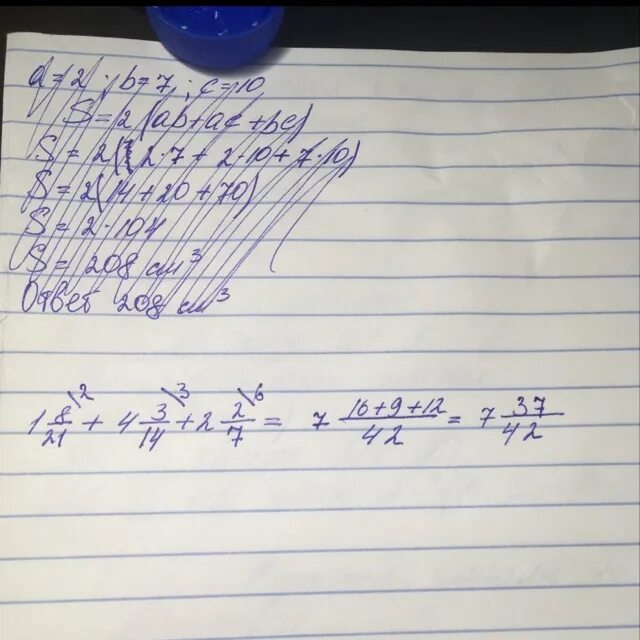 a=2; b=7; c=10
S=2(ab+ac+bc)
S=2(2·7+2·10+7·10)
S=2(14+20+70)
S=2·104
S=208 см³
Ответ 208 см³
1 8/21 \2 + 4 3/14 \3 + 2 2/7 \6 = 7 16+9+12/42 = 7 37/42